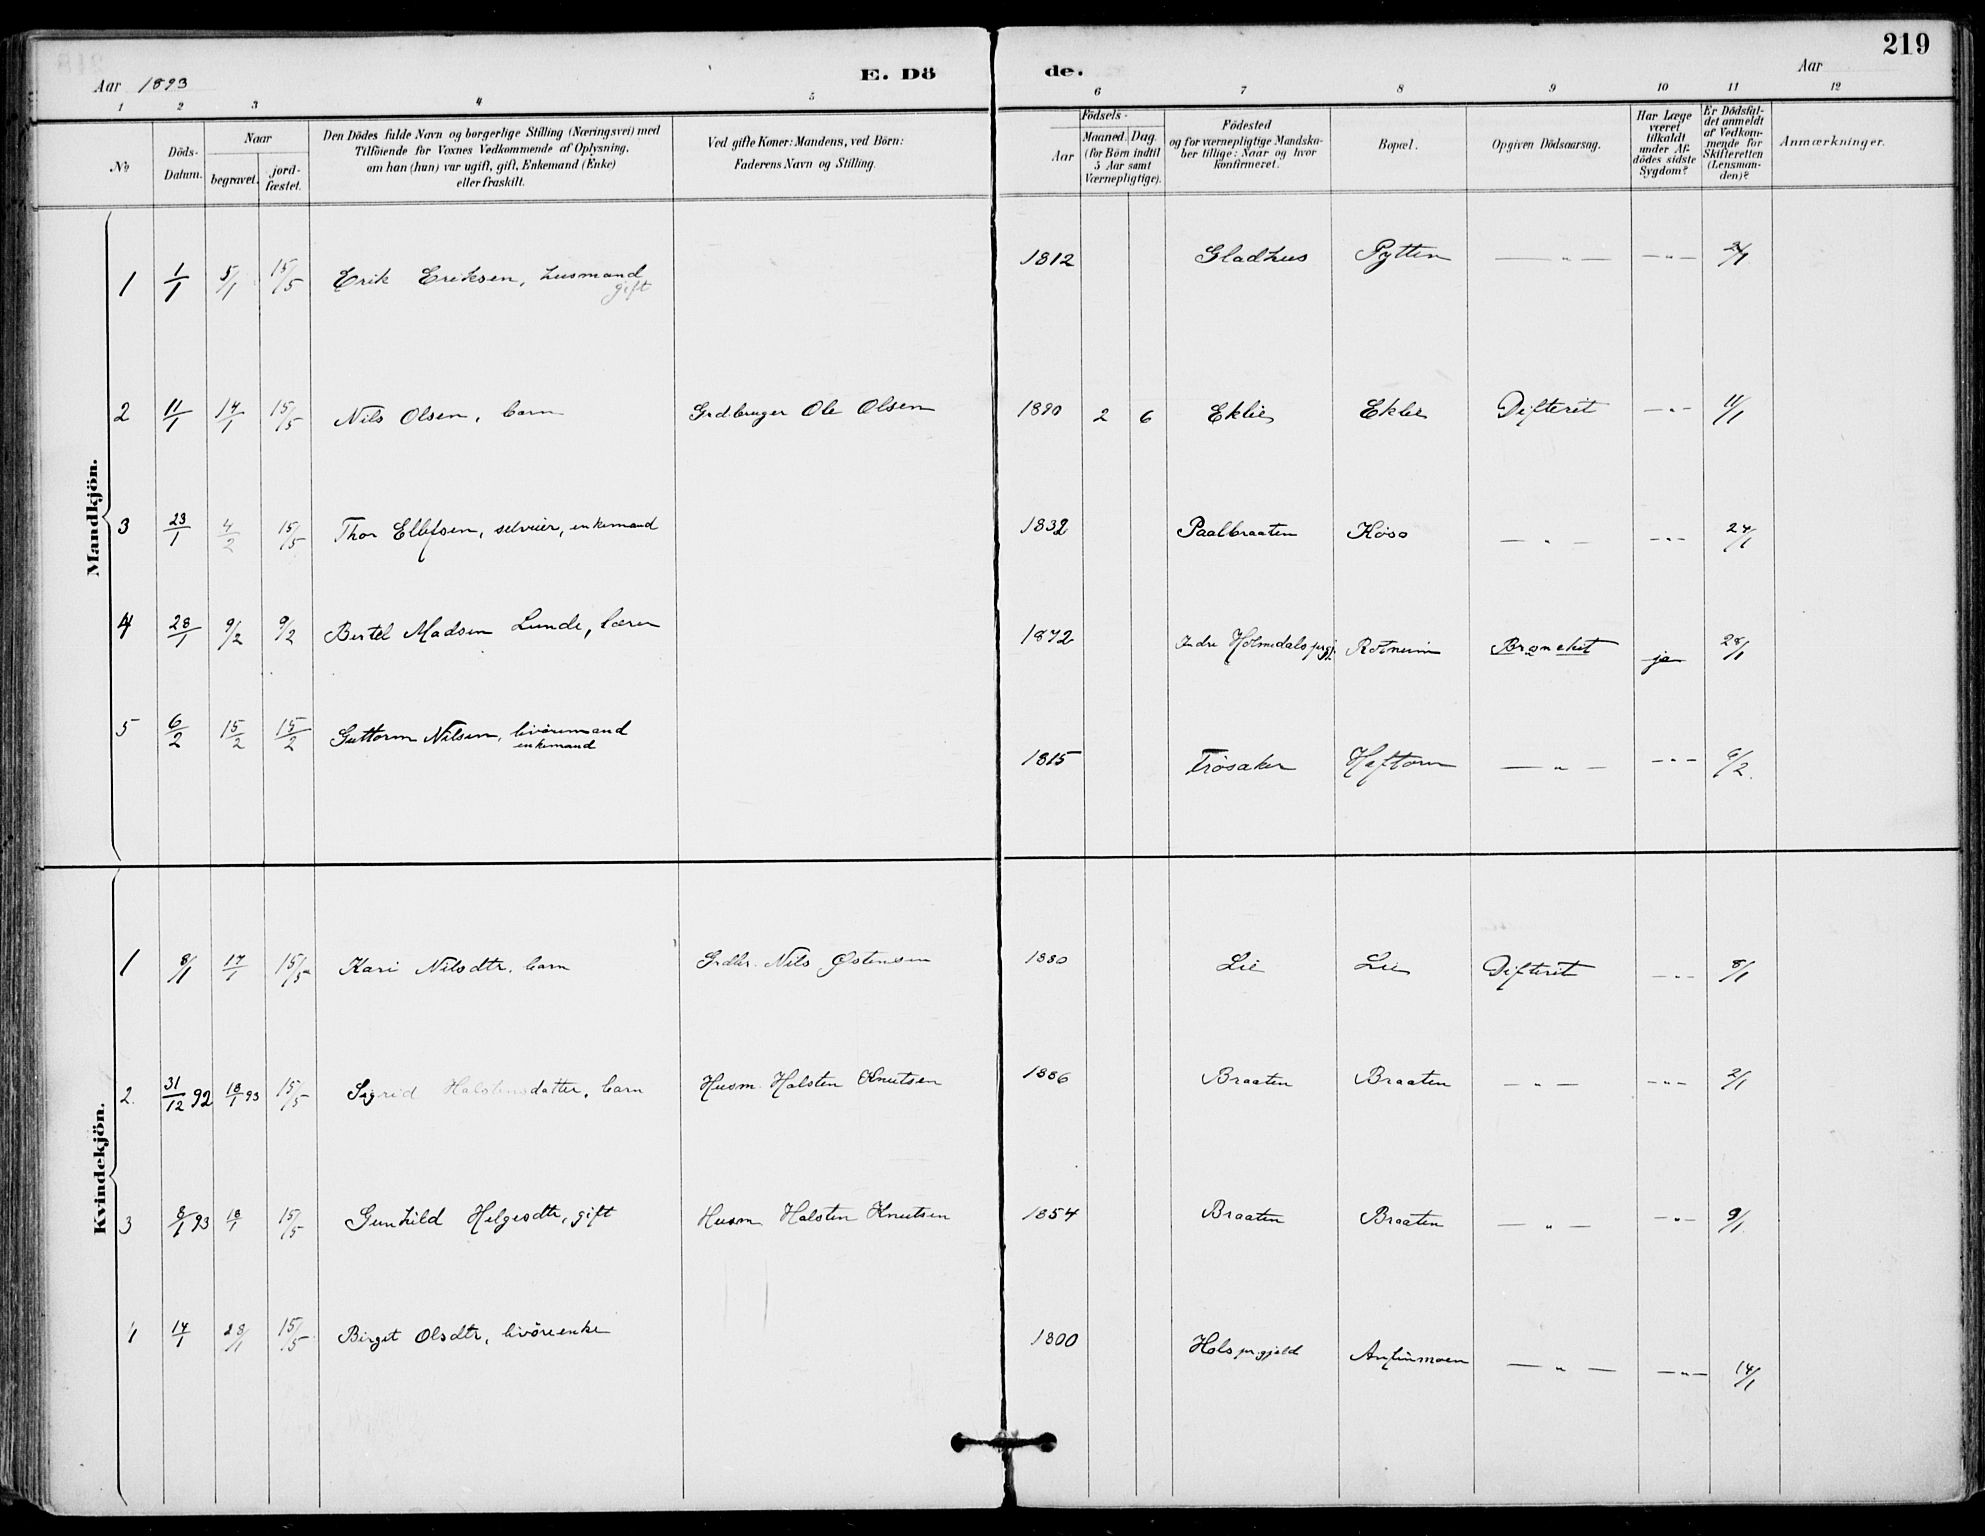 219
Aar 1893 E. Dö de. Aar
1 2 3 4 5 6 7 8 9 10 11 12
No Döds-Datum. Naar begravet. jord-fæstet. Den Dödes fulde Navn og borgerlige Stilling (Næringsvei) med Tilföiende for Voxnes Vedkommende af Oplysning, om han (hun) var ugift, gift, Enkemand (Enke) eller fraskilt. Ved gifte Koner: Mandens, ved Börn: Faderens Navn og Stilling. Födsels- Aar Maaned. Dag. (for Börn indtil 5 Aar samt Værnepligtige). Födested og for værnepligtige Mandskaber tillige: Naar og hvor konfirmeret. Bopæl. Opgiven Dödsaarsag. Har Læge været tilkaldt under Afdödes sidste Sygdom? Er Dödsfaldet anmeldt af Vedkommende for Skifteretten (Lensmanden)? Anmærkninger.
Mandkjön.
1 1/1 5/1 15/5 Erik Eriksen, husmand gift 1812 Gladhus Pytten — " — — " — 2/1
2 11/1 14/1 15/5 Nils Olsen, barn Grdbruger Ole Olsen 1890 2 6 Eklie Eklie Difterit — " — 11/1
3 23/1 4/2 15/5 Thor Ellefsen, selveier, enkemand 1832 Paalbraaten — " — — " — 24/1
4 28/1 9/2 9/2 Bertel Madsen Lunde, lærer 1872 Indre Holmedals prgj. Rotneim Bronchit ja 28/1
5 6/2 15/2 15/2 Guttorm Nilsen, livöremand enkemand 1815 Trösaker Haftorn — " — — " — 6/2.
Kvindekjön.
1 8/1 17/1 15/5 Kari Nilsdtr. barn Grdbr. Nils Östensen 1880 Lie Lie Difterit — " — 8/1
2. 31/12 92 18/1 93 15/5 Sigrid Halstensdatter, barn Husm. Halsten Knutsen 1886 Braaten Braaten — " — — " — 2/1
3 8/1 93 18/1 15/5 Gunhild Helgesdtr, gift Husm Halsten Knutsen 1854 Braaten Braaten — " — — " — 9/1
4 14/1 28/1 15/5 Birgit Olsdtr, livöreenke 1800 Hols pr.gjeld Anfinmoen — " — — " — 14/1